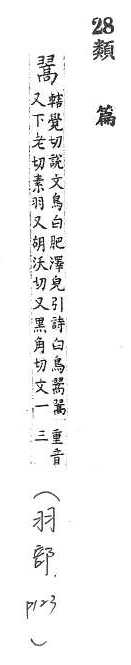 28 類 篇
翯
轄覺切說文鳥白肥澤皃引詩白鳥翯翯 重音
又下老切素羽又胡沃切又黑角切文一 三
(羽部. p123)